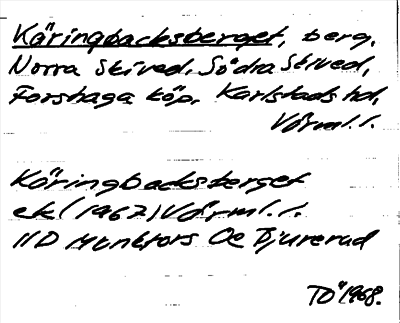 Käringbacksberget, berg,
Norra Skived, Södra Skived,
Forshaga köp, Karlstads hd,
Värml. l.
Käringbacksberget
ek (1967) Värml. l.
11D Munkfors Oe Djurerud
TÖ 1968.